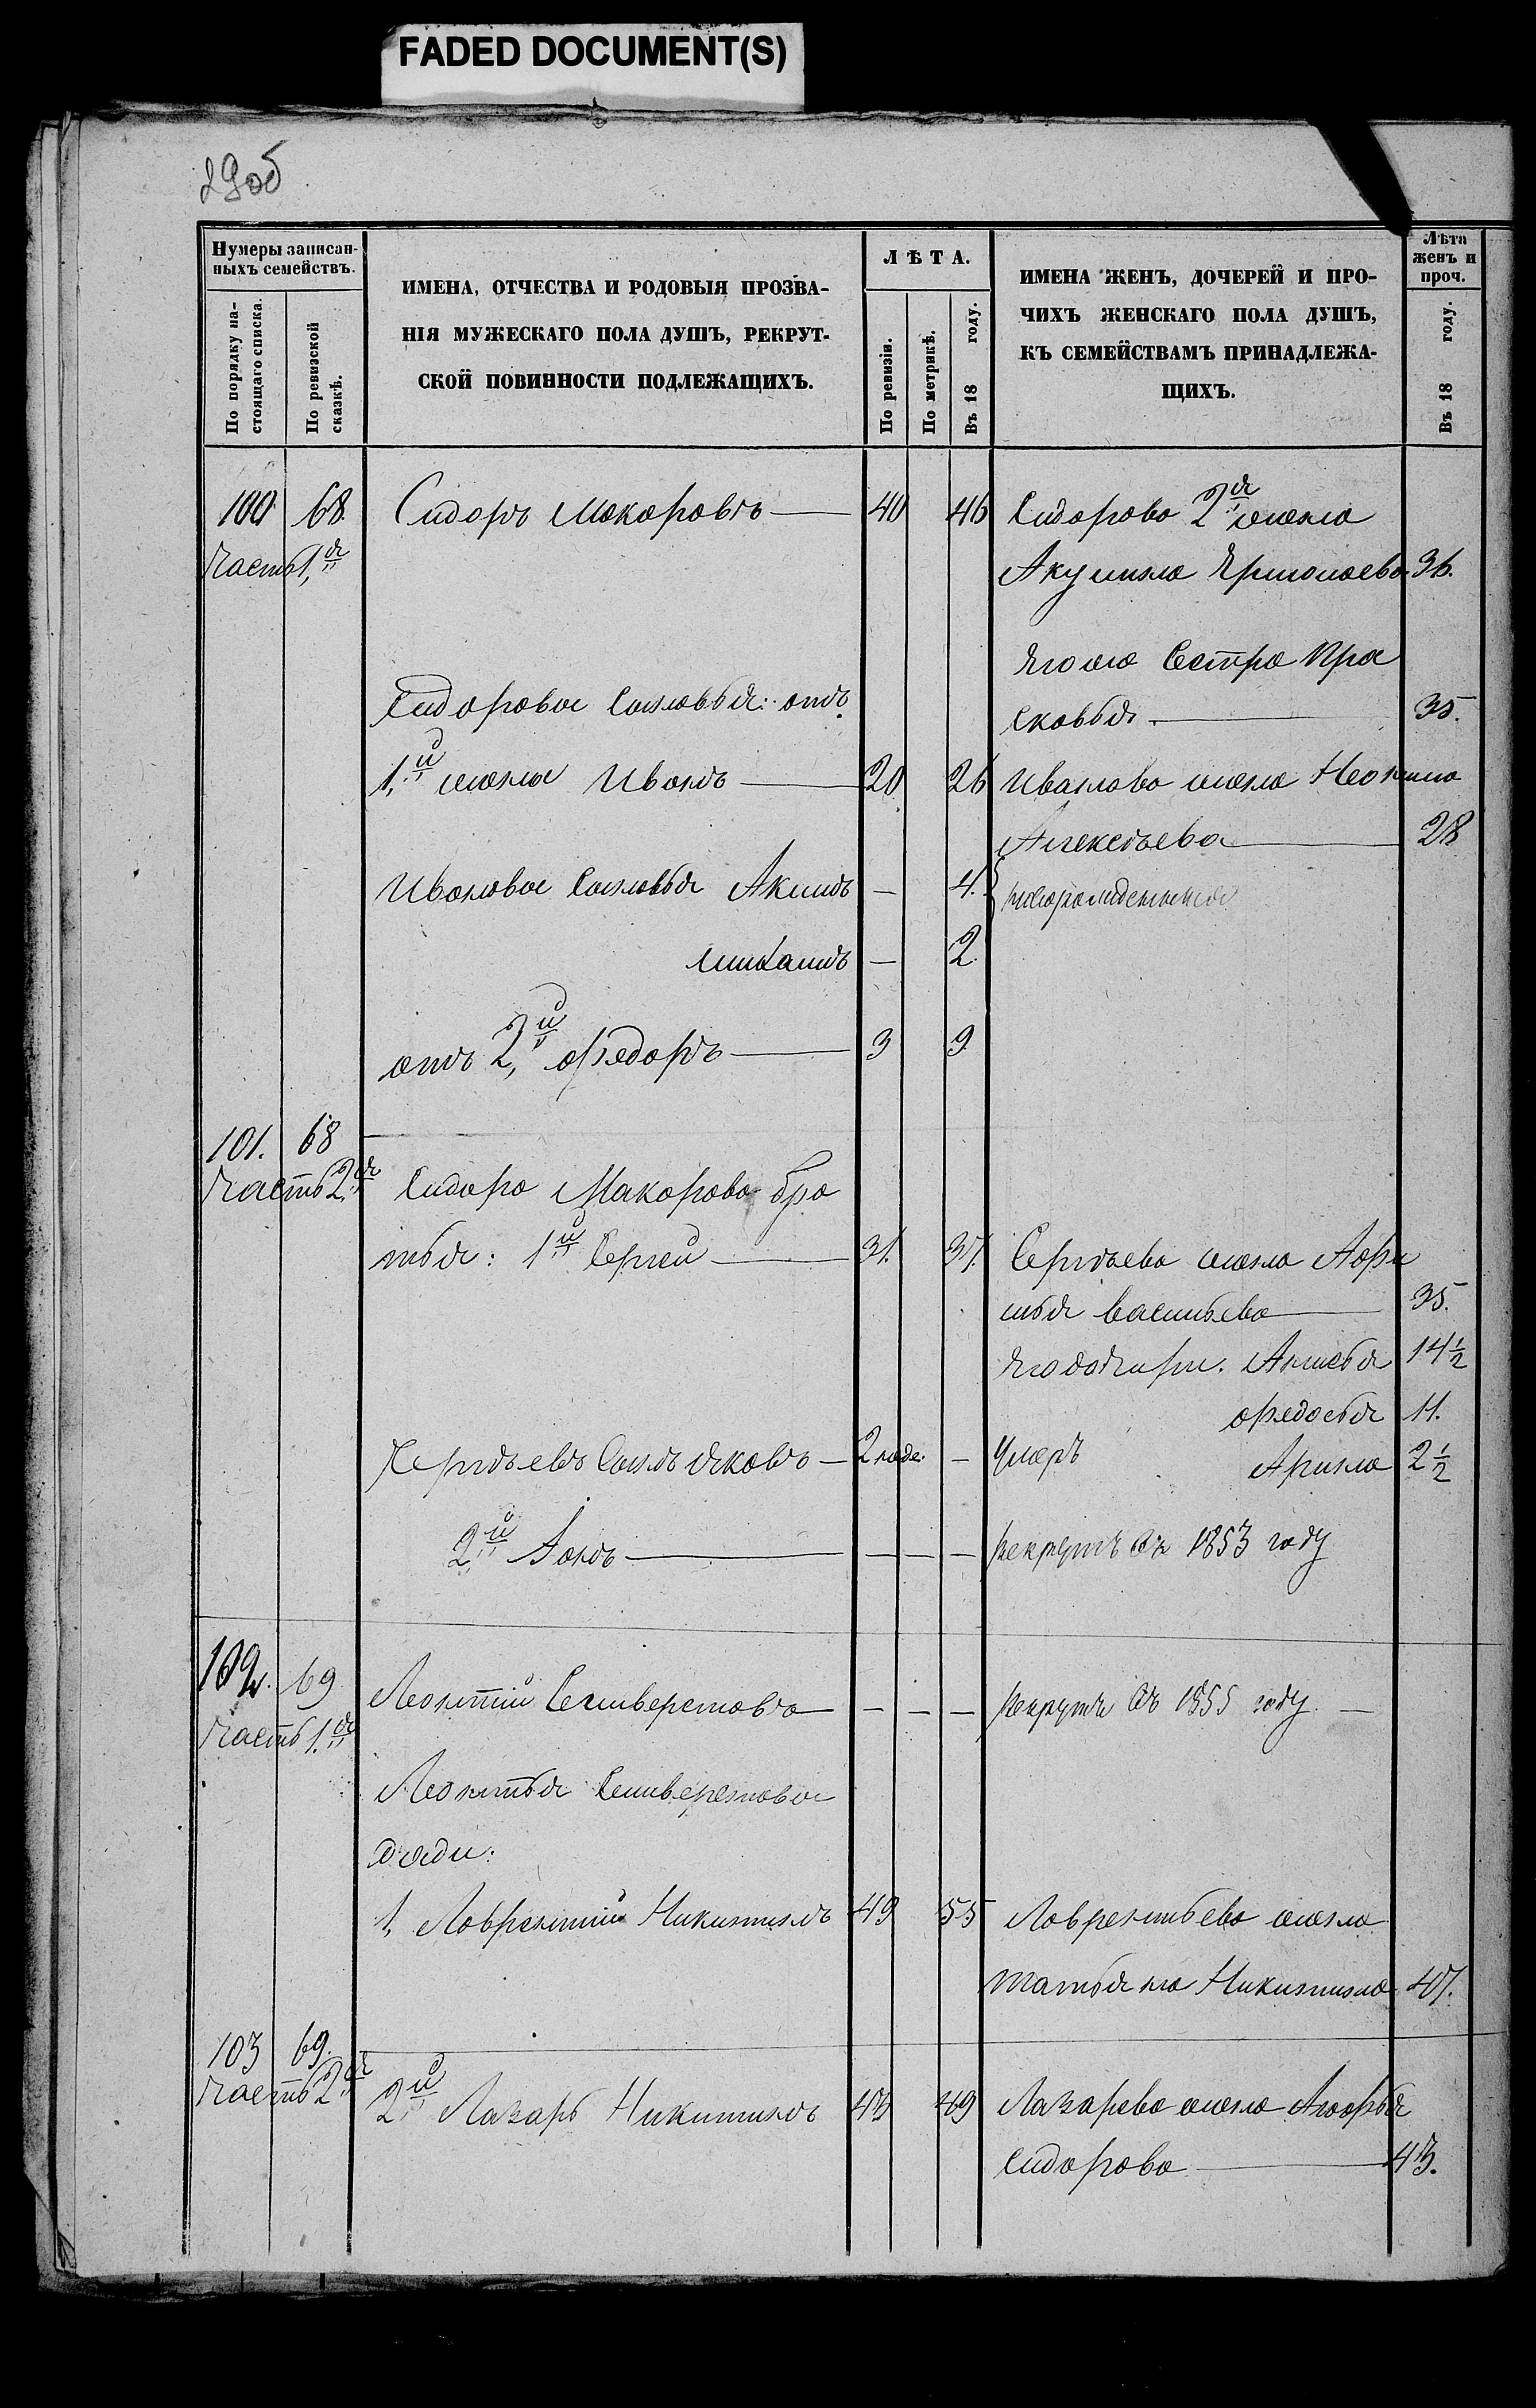 FADED DOCUMENT(S)
29об
Нумеры записан-
ныхъ семействъ.
По порядку на-
стоящаго списка.
По ревизской
сказкѣ.
ИМЕНА, ОТЧЕСТВА И РОДОВЫЯ ПРОЗВА-
НІЯ МУЖЕСКАГО ПОЛА ДУШЪ, РЕКРУТ-
СКОЙ ПОВИННОСТИ ПОДЛЕЖАЩИХЪ.
ЛѢТА.
По ревизіи.
По метрикѣ.
Въ 18 году.
ИМЕНА ЖЕНЪ, ДОЧЕРЕЙ И ПРО-
ЧИХЪ ЖЕНСКАГО ПОЛА ДУШЪ,
КЪ СЕМЕЙСТВАМЪ ПРИНАДЛЕЖА-
ЩИХЪ.
Лѣта
женъ и
проч.
Въ 18 году.
100 68 Сидоръ Макаровъ — 40 46 Сидорова 2я жена
Часть 1,я Акулина Ермолаева 36.
Его же Сестра Пра
Сидоровы Сыновья: отъ сковья — 35.
1,й жены Иванъ — 20 26 Иванова жена Неонила
Алексѣева — 28
Ивановы Сыновья Акимъ — 4. } новорожденныя
— 2
отъ 2,й Федоръ — 3 9
101. 68
Часть 2,я Сидора Макарова бра
тья: 1й Сергей — 31. 37. Сергѣева жена
Васильева — 35.
Его дочери. Анисья 14½
Федосья 11.
Сергѣевъ Сынъ Яковъ — 2 неде. — Умеръ Арина 2½
2,й — — — — рекрутъ Съ 1853 году
102. 69 Леонтий Селиверстовъ — — — — рекрутъ Съ 1855 году. —
Часть 1.я
Леонтья Селиверстова
дяди:
1, Лаврентий Никитинъ 49 55 Лаврентьева жена
Татьяна Никитина 47.
103 69.
Часть 2,я 2,й Лазарь Никитинъ 43 49 Лазарева жена Агафья
Сидорова — 43.